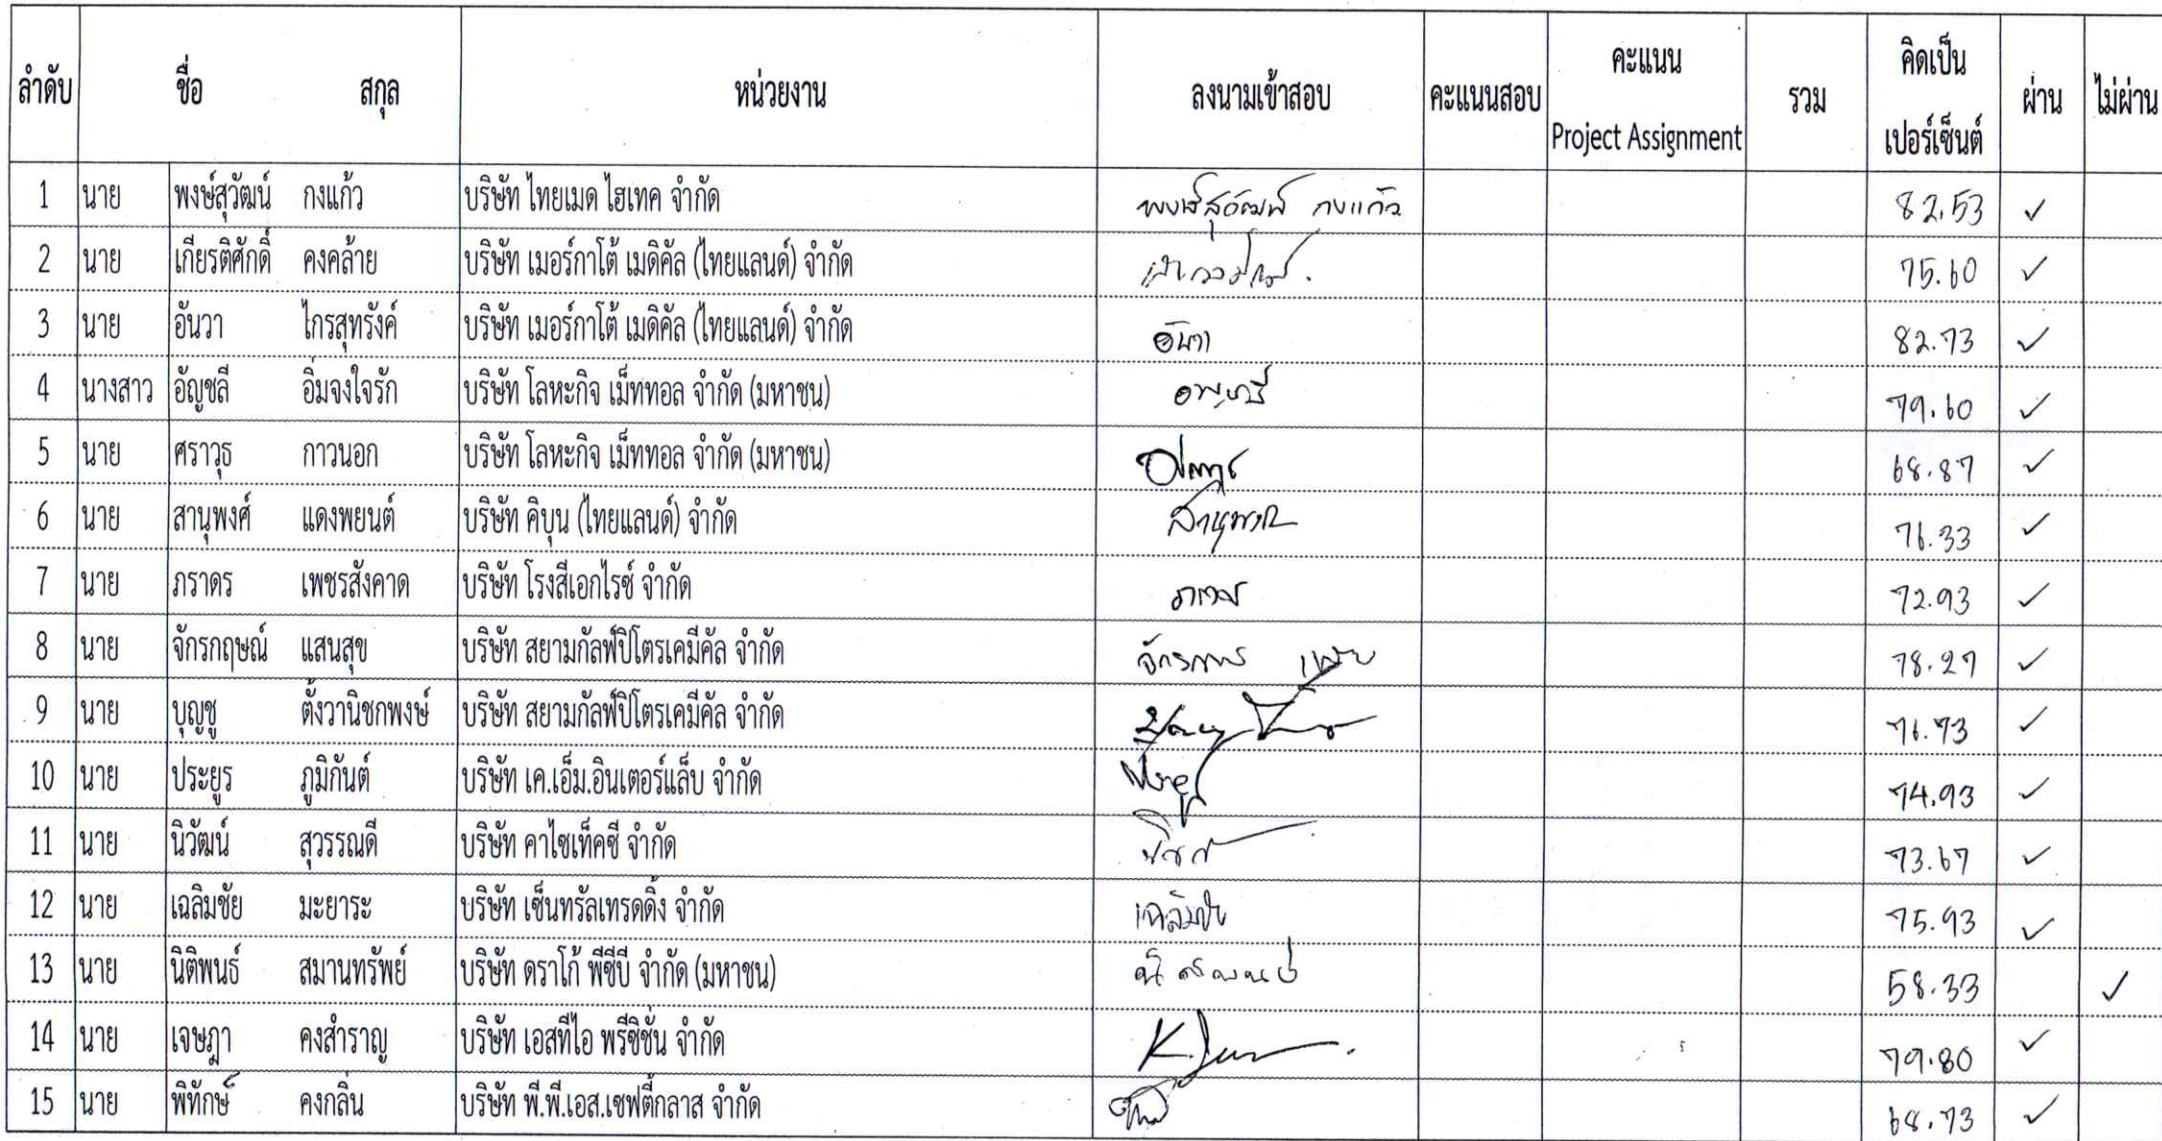 ลำดับ ชื่อ สกุล หน่วยงาน ลงนามเข้าสอบ คะแนนสอบ คะแนน Project Assignment รวม คิดเป็น เปอร์เซ็นต์ ผ่าน ไม่ผ่าน
1 นาย พงษ์สุวัฒน์ กงแก้ว บริษัท ไทยเมด ไฮเทค จำกัด พงษ์สุวัฒน์ กงแก้ว 82.53 ✓
2 นาย เกียรติศักดิ์ คงคล้าย บริษัท เมอร์กาโต้ เมดิคัล (ไทยแลนด์) จำกัด 75.60 ✓
3 นาย อันวา ไกรสุทรังค์ บริษัท เมอร์กาโต้ เมดิคัล (ไทยแลนด์) จำกัด อันวา 82.73 ✓
4 นางสาว อัญชลี อิ่มจงใจรัก บริษัท โลหะกิจ เม็ททอล จำกัด (มหาชน) 79.60 ✓
5 นาย ศราวุธ กาวนอก บริษัท โลหะกิจ เม็ททอล จำกัด (มหาชน) 68.87 ✓
6 นาย สานุพงศ์ แดงพยนต์ บริษัท คิบุน (ไทยแลนด์) จำกัด 76.33 ✓
7 นาย ภราดร เพชรสังคาด บริษัท โรงสีเอกไรซ์ จำกัด ภราดร 72.93 ✓
8 นาย จักรกฤษณ์ แสนสุข บริษัท สยามกัลฟ์ปิโตรเคมีคัล จำกัด 78.27 ✓
9 นาย บุญชู ตั้งวานิชกพงษ์ บริษัท สยามกัลฟ์ปิโตรเคมีคัล จำกัด 76.73 ✓
10 นาย ประยูร ภูมิกันต์ บริษัท เค.เอ็ม.อินเตอร์แล็บ จำกัด 74.93 ✓
11 นาย นิวัฒน์ สุวรรณดี บริษัท คาไซเท็คซี จำกัด 73.67 ✓
12 นาย เฉลิมชัย มะยาระ บริษัท เซ็นทรัลเทรดดิ้ง จำกัด เฉลิมชัย 75.93 ✓
13 นาย นิติพนธ์ สมานทรัพย์ บริษัท ดราโก้ พีซีบี จำกัด (มหาชน) 58.33 ✓
14 นาย เจษฎา คงสำราญ บริษัท เอสทีไอ พรีซิชั่น จำกัด 79.80 ✓
15 นาย พิทักษ์ คงกลิ่น บริษัท พี.พี.เอส.เซฟตี้กลาส จำกัด 68.73 ✓